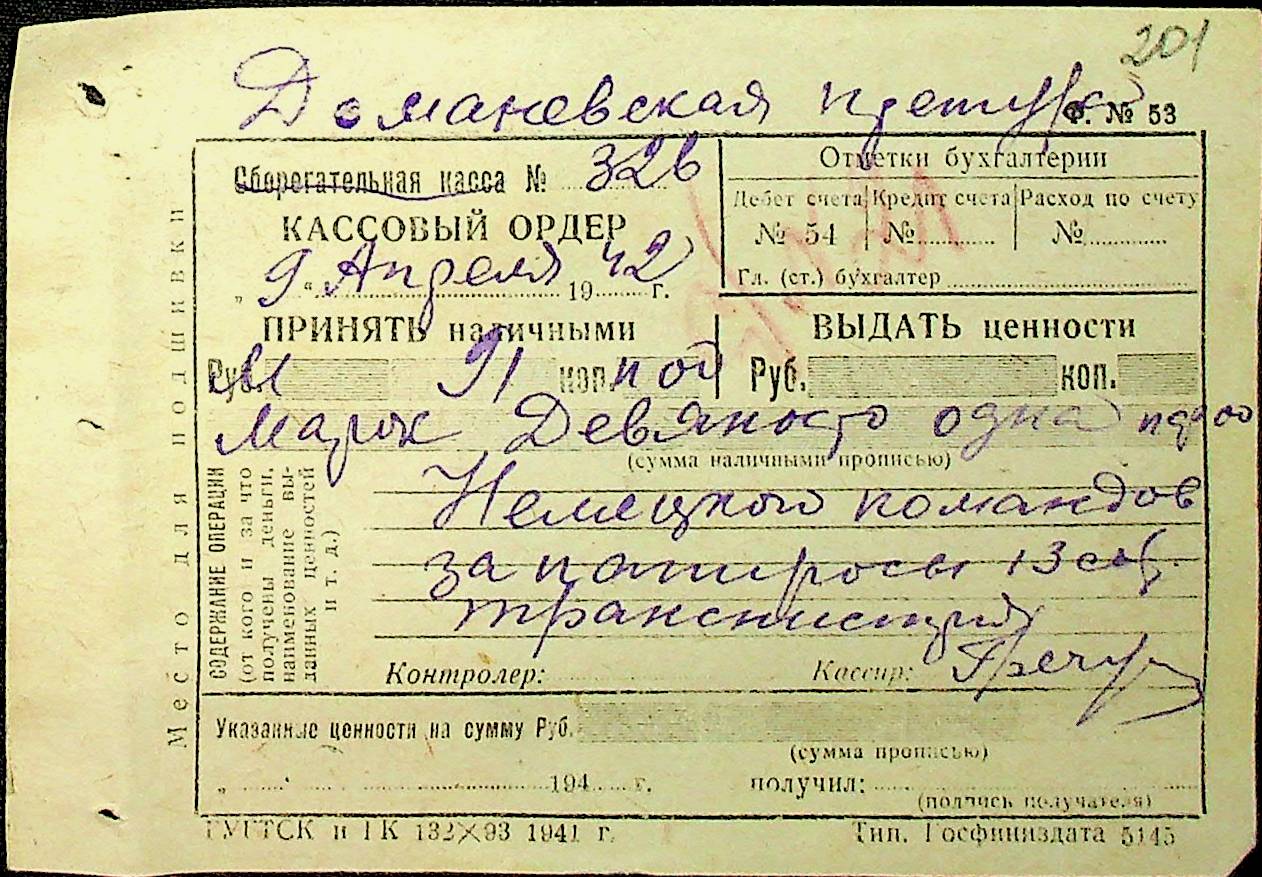 201
Доманевская претура
Ф. № 53
Сберегательная касса № 326
КАССОВЫЙ ОРДЕР
„ 9 “ Апреля 1942 г.
Отметки бухгалтерии
Дебет счета Кредит счета Расход по счету
№ 54 № №
Гл. (ст.) бухгалтер
ПРИНЯТЬ наличными
Руб. М 91 коп.
ВЫДАТЬ ценности
Руб. коп.
Марок Девяносто одна
(сумма наличными прописью)
Место для подшивки
СОДЕРЖАНИЕ ОПЕРАЦИИ
(от кого и за что
получены деньги,
наименование вы-
данных ценностей
и т. д.)
Немецкого командов
за папиросы
Контролер:
Кассир:
Указанные ценности на сумму Руб.
(сумма прописью)
„ 194 г.
получил:
(подпись получателя)
ГУГТСК и ГК 132×93 1941 г.
Тип. Госфиниздата 5145